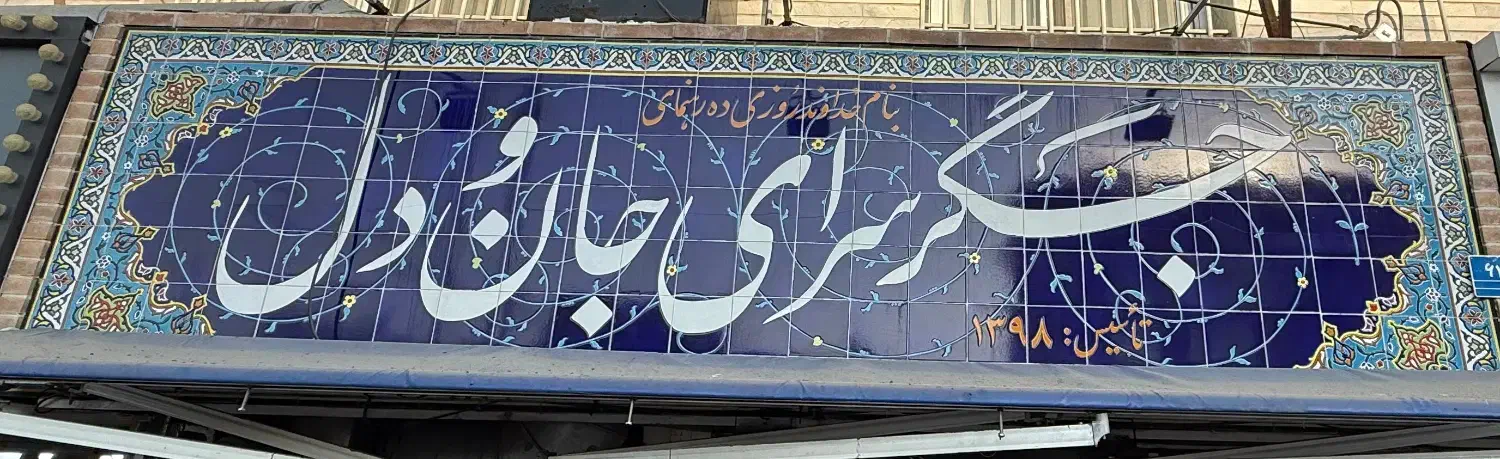 بنام خداوند روزی ده رهنمای
جگرسرای جان و دل
تأسیس: ۱۳۹۸